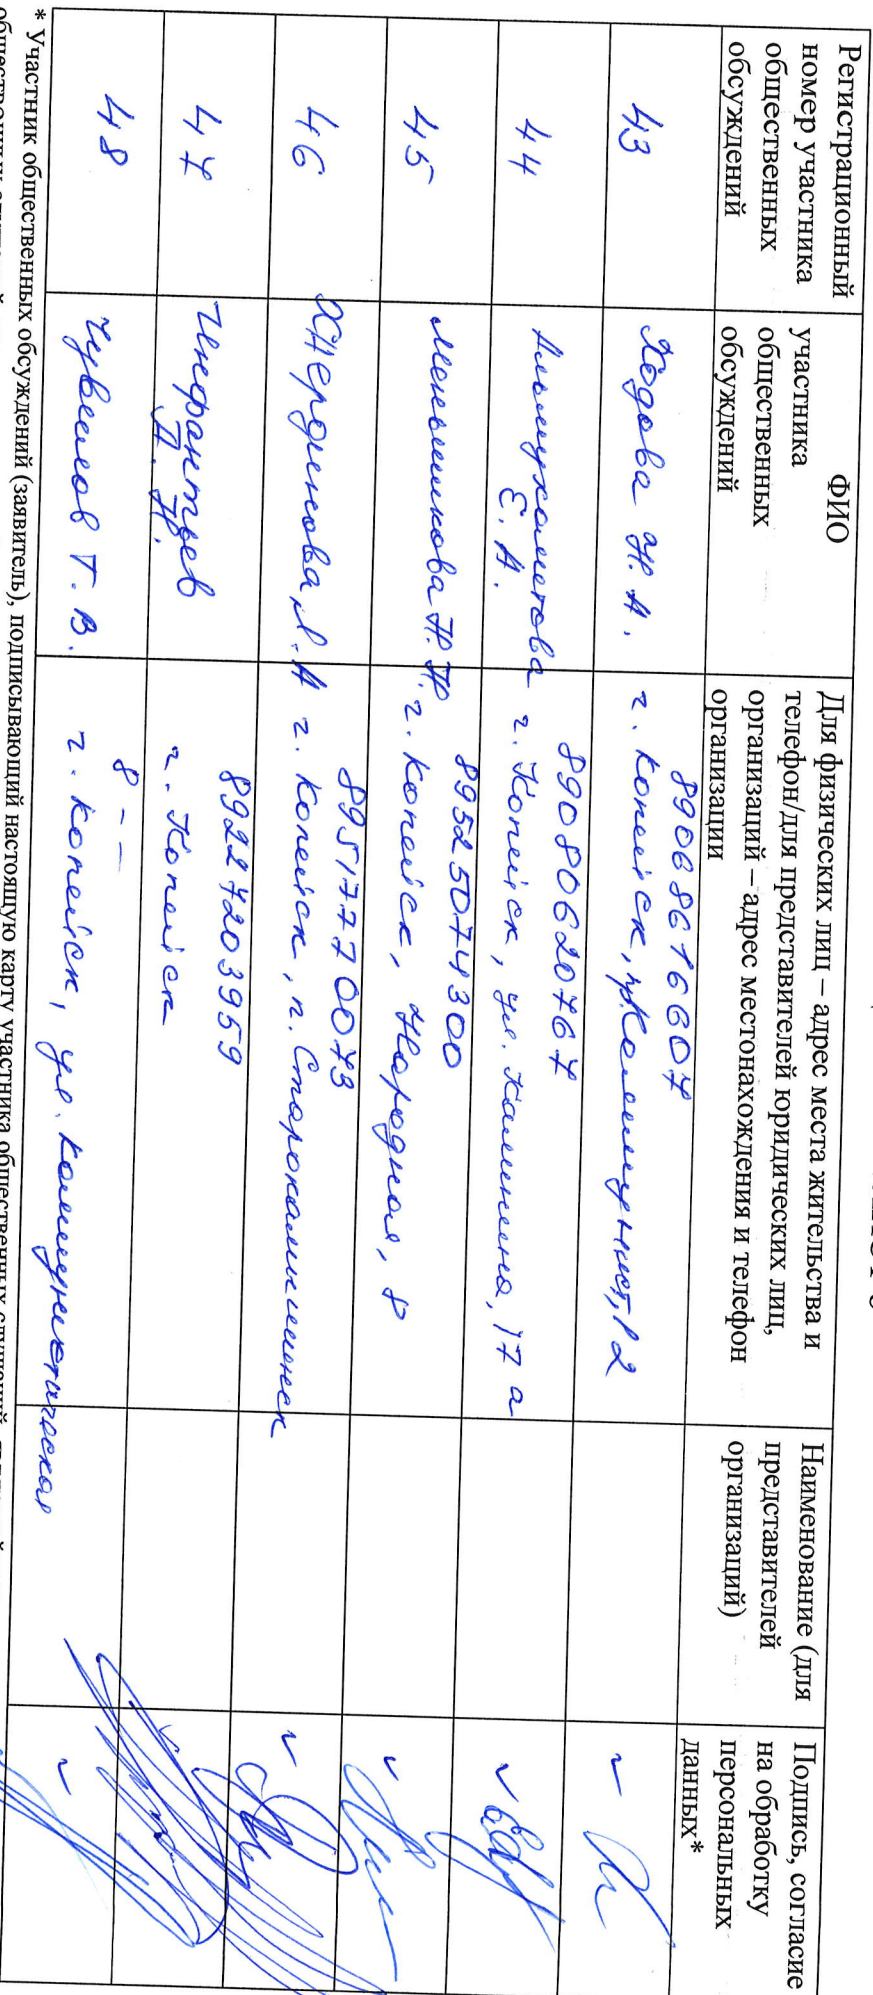 Регистрационный
номер участника
общественных
обсуждений
ФИО
участника
общественных
обсуждений
Для физических лиц – адрес места жительства и
телефон/для представителей юридических лиц,
организаций – адрес местонахождения и телефон
организации
Наименование (для
представителей
организаций)
Подпись, согласие
на обработку
персональных
данных*
43
Ходова Н. А.
89068616607
г. Копейск,
44
Альмухаметова
Е. А.
89080620767
г. Копейск, ул. Калинина, 17 а
45
Меньшикова Н. Н.
89525074300
г. Копейск, Народная, 8
46
89517770073
г. Копейск, п. Старокамышинск
47
Инфантьев
89227203959
г. Копейск
48
Чувашов Т. В.
8 - -
г. Копейск, ул. Коммунистическая
* Участник общественных обсуждений (заявитель), подписывающий настоящую карту участника общественных слушаний,